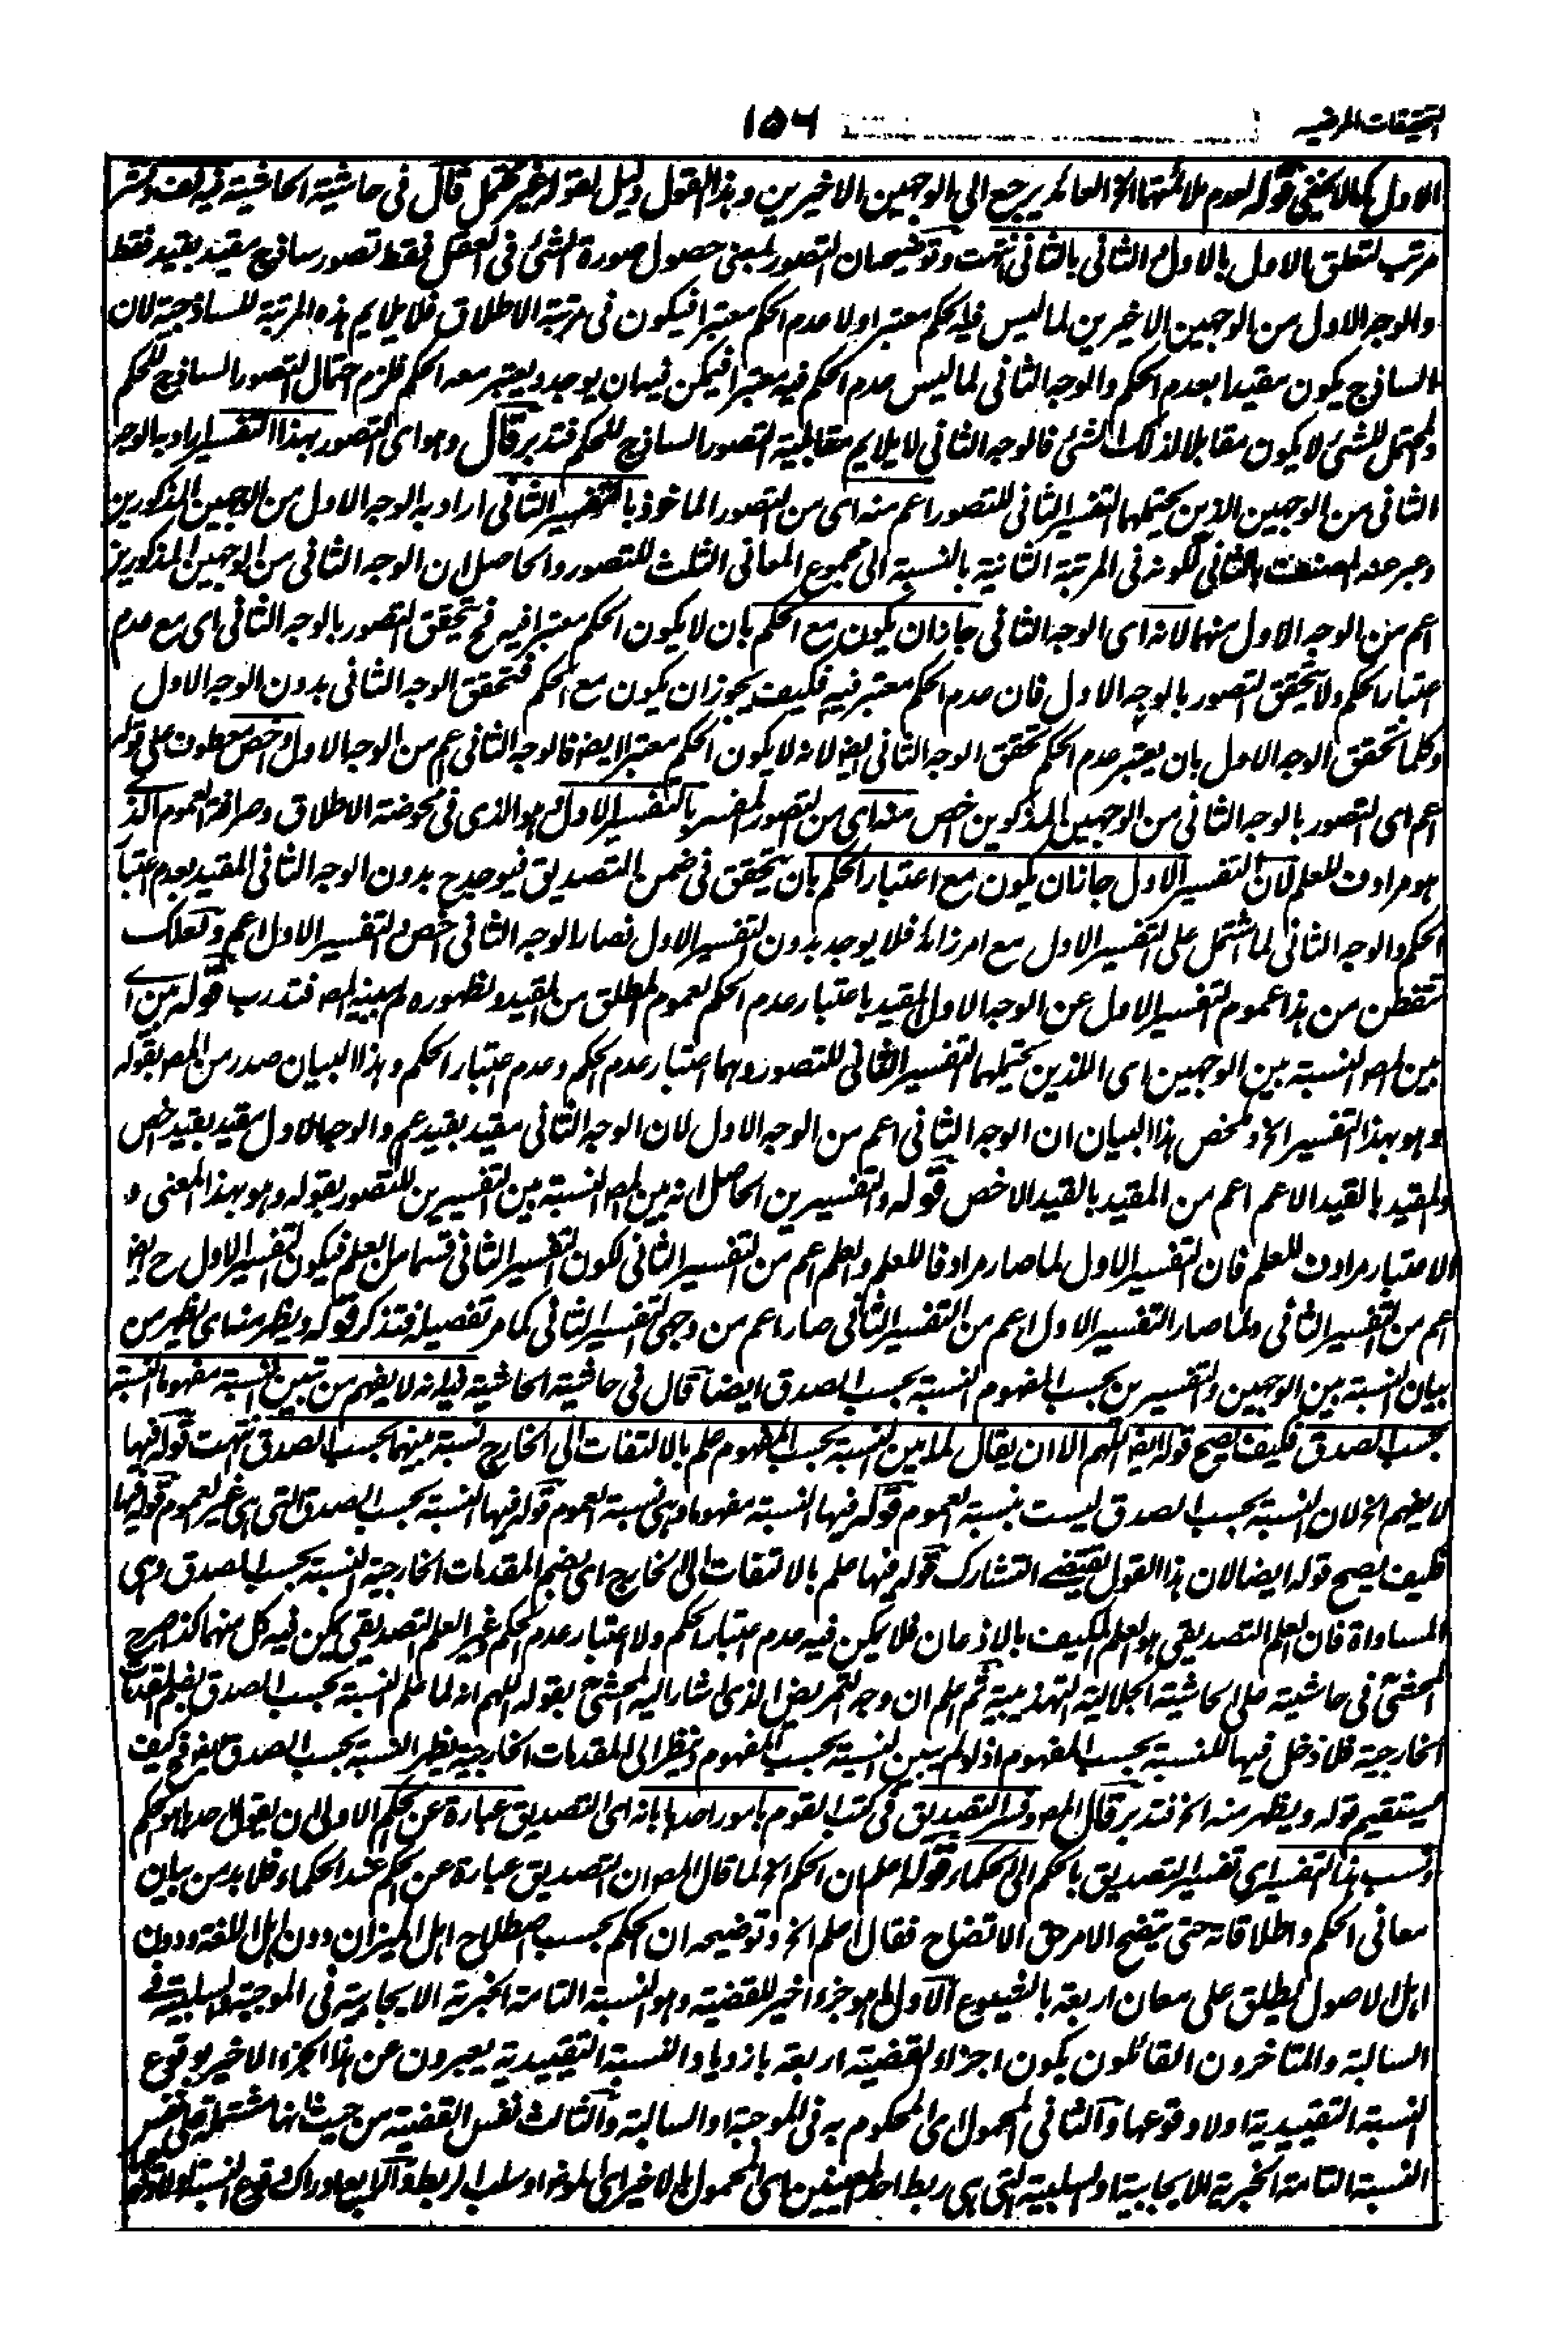 التحقيقات المرضيه ١٥٤
الاول كما لا يخفى قوله لعدم ملائمتها الخ العائد يرجع الى الوجهين الاخيرين وهذا القول دليل لقوله غير محتمل قال فى حاشية الحاشية فيه لف ونشر
مرتب لتعلق الاول بالاول والثانى بالثانى انتهت وتوضيحه ان التصور بمعنى حصول صورة الشئ فى العقل فقط تصور ساذج مقيد بقيد فقط
والوجه الاول من الوجهين الاخيرين لما ليس فيه الحكم معتبرا ولا عدم الحكم معتبرا فيكون فى مرتبة الاطلاق فلا يلايم هذه المرتبة للساذجية لان
الساذج يكون مقيدا بعدم الحكم والوجه الثانى لما ليس عدم الحكم فيه معتبرا فيمكن فيه ان يوجد ويعتبر معه الحكم فلزم احتمال التصور الساذج للحكم
والمحتمل للشئ لا يكون مقابلا لذلك الشئ فالوجه الثانى لا يلايم مقابلية التصور الساذج للحكم فتدبر قال وهو اى التصور بهذا التفسير اراد به الوجه
الثانى من الوجهين الذين يحتملهما التفسير الثانى للتصور اعم منه اى من التصور الماخوذ بالتفسير الثانى اراد به الوجه الاول من الوجهين المذكورين
وعبر عنه المصنف بالثانى لكونه فى المرتبة الثانية بالنسبة الى مجموع المعانى الثلث للتصور والحاصل ان الوجه الثانى من الوجهين المذكورين
اعم من الوجه الاول منهما لانه اى الوجه الثانى جاز ان يكون مع الحكم بان لا يكون الحكم معتبرا فيه فح يتحقق التصور بالوجه الثانى اى مع عدم
اعتبار الحكم ولا يتحقق التصور بالوجه الاول فان عدم الحكم معتبر فيه فكيف يجوز ان يكون مع الحكم فتحقق الوجه الثانى بدون الوجه الاول
وكلما تحقق الوجه الاول بان يعتبر عدم الحكم تحقق الوجه الثانى ايضا لانه لا يكون الحكم معتبرا ايضا فالوجه الثانى اعم من الوجه الاول واخص معطوف على قوله
اعم اى التصور بالوجه الثانى من الوجهين المذكورين اخص منه اى من التصور المفسر بالتفسير الاول وهو الذى فى محوضة الاطلاق وصرافة العموم الذى
هو مرادف للعلم لان التفسير الاول جاز ان يكون مع اعتبار الحكم بان يتحقق فى ضمن التصديق فيوجد ح بدون الوجه الثانى المقيد بعدم اعتبار
الحكم والوجه الثانى لما اشتمل على التفسير الاول مع امر زائد فلا يوجد بدون التفسير الاول فصار الوجه الثانى اخص والتفسير الاول اعم ولعلك
تتفطن من هذا عموم التفسير الاول عن الوجه الاول المقيد باعتبار عدم الحكم لعموم المطلق من المقيد ولظهوره لم يبينه المصـ فتدرب قوله بين اى
بين المصـ النسبة بين الوجهين اى اللذين يحتملهما التفسير الثانى للتصور وهما اعتبار عدم الحكم وعدم اعتبار الحكم وهذا البيان صدر من المصـ بقوله
وهو بهذا التفسير الخ وملخص هذا البيان ان الوجه الثانى اعم من الوجه الاول لان الوجه الثانى مقيد بقيد اعم والوجه الاول مقيد بقيد اخص
والمقيد بالقيد الاعم اعم من المقيد بالقيد الاخص قوله والتفسيرين الحاصل انه بين المصـ النسبة بين التفسيرين للتصور بقوله وهو بهذا المعنى و
الاعتبار مرادف للعلم فان التفسير الاول لما صار مرادفا للعلم والعلم اعم من التفسير الثانى لكون التفسير الثانى قسما من العلم فيكون التفسير الاول ح ايضا
اعم من التفسير الثانى ولما صار التفسير الاول اعم من التفسير الثانى صار اعم من وجهى التفسير الثانى كما مر تفصيله فتذكر قوله ويظهر منه اى يظهر من
بيان النسبة بين الوجهين والتفسيرين بحسب المفهوم النسبة بحسب الصدق ايضا قال فى حاشية الحاشية فيه انه لا يفهم من تبيين النسبة مفهوما النسبة
بحسب الصدق فكيف يصح قوله ايضا اللهم الا ان يقال لما بين النسبة بحسب المفهوم علم بالالتفات الى الخارج نسبة بينهما بحسب الصدق انتهت قوله فيها
لا يفهم الخ لان النسبة بحسب الصدق ليست بنسبة العموم قوله فيها النسبة مفهوما وهى نسبة العموم قوله فيها النسبة بحسب الصدق التى هى غير العموم قوله فيها
فكيف يصح قوله ايضا لان هذا القول يقتضى التشارك قوله فيها علم بالالتفات الى الخارج اى بضم المقدمات الخارجية النسبة بحسب الصدق وهى
المساواة فان العلم التصديقى هو العلم المكيف بالاذعان فلا يمكن فيه عدم اعتبار الحكم ولا اعتبار عدم الحكم وغير العلم التصديقى يمكن فيه كل منهما كذا صرح
المحشى فى حاشيته على الحاشية الجلالية التهذيبية ثم اعلم ان وجه التمريض الذى اشار اليه المحشى بقوله اللهم انه لما علم النسبة بحسب الصدق بضم المقدمات
الخارجية فلا دخل فيها للنسبة بحسب المفهوم اذ لو لم يبين النسبة بحسب المفهوم ونظر الى المقدمات الخارجية يظهر النسبة بحسب الصدق ايضا فح كيف
يستقيم قوله ويظهر منه الخ فتدبر قال المصـ وفسر التصديق فى كتب القوم بامور احدها بانه اى التصديق عبارة عن الحكم الاولى ان يقول احدها هو الحكم
ونسب هذا التفسير اى تفسير التصديق بالحكم الى الحكماء قوله اعلم ان الحكم الخ لما قال المصـ ان التصديق عبارة عن الحكم عند الحكماء فلا بد من بيان
معانى الحكم واطلاقاته حتى يتضح الامر حق الاتضاح فقال اعلم الخ وتوضيحه ان الحكم بحسب اصطلاح اهل الميزان دون اهل اللغة ودون
اهل الاصول يطلق على معان اربعة بالشيوع الاول ما هو جزء اخير للقضية وهو النسبة التامة الخبرية الايجابية فى الموجبة والسلبية فى
السالبة والمتاخرون القائلون بكون اجزاء القضية اربعة بازدياد النسبة التقييدية يعبرون عن هذا الجزء الاخير بوقوع
النسبة التقييدية او لا وقوعها والثانى المحمول اى المحكوم به فى الموجبة او السالبة والثالث نفس القضية من حيث انها مشتملة على نفس
النسبة التامة الخبرية الايجابية او السلبية التى هى ربط احد المعنيين اى المحمول الى الاخير اى الموضوع او سلب الربط والرابع ادراك وقوع النسبة او لا وقوعها